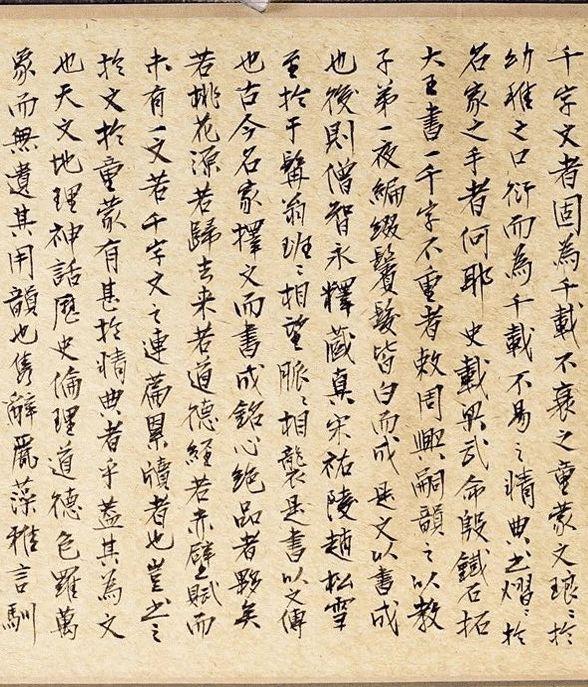 千字文者固為千載不衰之童蒙文琅〻於
幼稚之口衍而為千載不易之精典書熠〻於
名家之手者何耶史載梁武命殷鐵石拓
大王書一千字不重者敕周興嗣韻之以教
子弟一夜編綴鬢髮皆白而成是文以書成
也後則僧智永釋藏真宋祐陵趙松雪
至於干髯翁班〻相望脈〻相襲是書以文傳
也古今名家擇文而書成銘心絶品者夥矣
若桃花源若歸去来若道德經若赤壁賦而
未有一文若千字文之連篇累牘者也豈書之
於文於童蒙有甚於精典者乎蓋其為文
也天文地理神話歷史倫理道德包羅萬
象而無遺其用韻也雋辭麗藻雅言馴